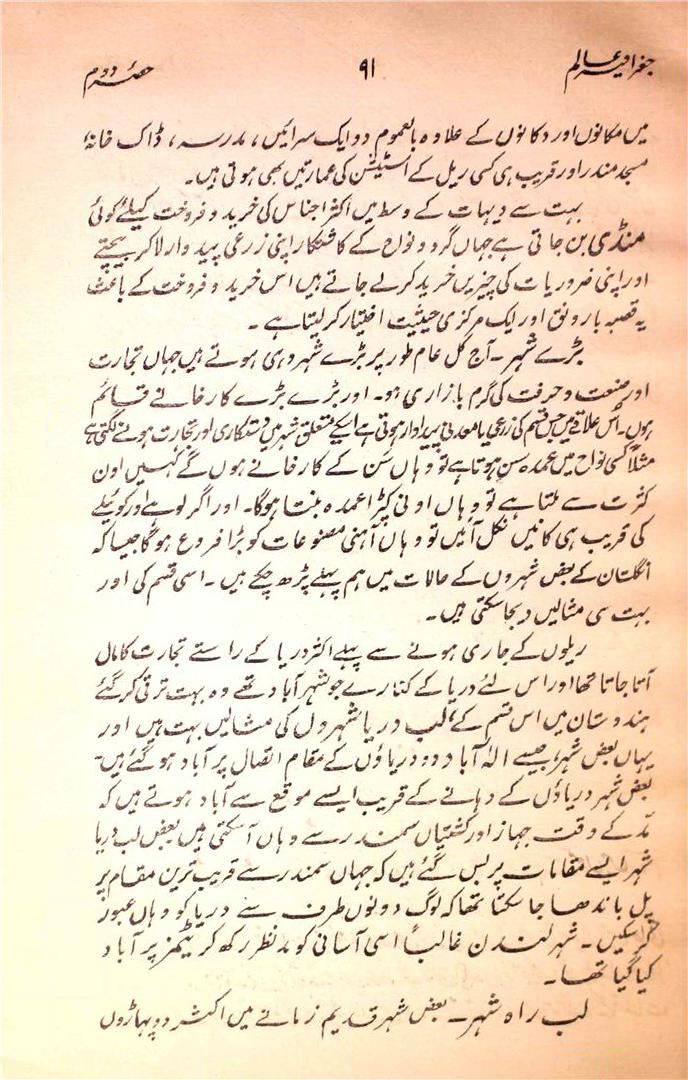 جغرافیہ عالم ۹۱ حصّہ دوم
میں مکانوں اور دکانوں کے علاوہ بالعموم دو ایک سرائیں، مدرسہ، ڈاک خانہ،
مسجد مندر اور قریب ہی کسی ریل کے اسٹیشن کی عمارتیں بھی ہوتی ہیں۔
بہت سے دیہات کے وسط میں اکثر اجناس کی خرید و فروخت کیلئے کوئی
منڈی بن جاتی ہے جہاں گرد و نواح کے کاشتکار اپنی زرعی پیدوار لاکر بیچتے
اور اپنی ضروریات کی چیزیں خرید کر لے جاتے ہیں اس خرید و فروخت کے باعث
یہ قصبہ بارونق اور ایک مرکزی حیثیت اختیار کر لیتا ہے ۔
بڑے شہر۔ آج کل عام طور پر بڑے شہر وہی ہوتے ہیں جہاں تجارت
اور صنعت و حرفت کی گرم بازاری ہو۔ اور بڑے بڑے کارخانے قائم
ہوں۔ اُس علاقے میں جس قسم کی زرعی یا معدنی پیداوار ہوتی ہے اسکے متعلق شہر میں دستکاری اور تجارت ہونے لگتی ہے
مثلاً کسی نواح میں عمدہ سن ہوتا ہے تو وہاں سن کے کارخانے ہوں گے کہیں اون
کثرت سے ملتا ہے تو وہاں اونی کپڑا عمدہ بنتا ہوگا۔ اور اگر لوہے اور کوئیلے
کی قریب ہی کانیں نکل آئیں تو وہاں آہنی مصنوعات کو بڑا فروغ ہوگا جیسا کہ
انگلستان کے بعض شہروں کے حالات میں ہم پہلے پڑھ چکے ہیں ۔ اسی قسم کی اور
بہت سی مثالیں دیجا سکتی ہیں ۔
ریلوں کے جاری ہونے سے پہلے اکثر دریا کے راستے تجارت کا مال
آتا جاتا تھا اور اس لئے دریا کے کنارے جو شہر آباد تھے وہ بہت ترقی کر گئے
ہندوستان میں اس قسم کے لب دریا شہروں کی مثالیں بہت ہیں اور
یہاں بعض شہر جیسے الٰہ آباد دو دریاؤں کے مقام اتصال پر آباد ہو گئے ہیں۔
بعض شہر دریاؤں کے دہانے کے قریب ایسے موقع سے آباد ہوتے ہیں کہ
مدّ کے وقت جہاز اور کشتیاں سمندر سے وہاں آسکتی ہیں بعض لب دریا
شہر ایسے مقامات پر بس گئے ہیں کہ جہاں سمندر سے قریب ترین مقام پر
پل باندھا جا سکتا تھا کہ لوگ دونوں طرف سے دریا کو وہاں عبور
کر سکیں ۔ شہر لندن غالباً اسی آسانی کو مدنظر رکھ کر ٹیمز پر آباد
کیا گیا تھا۔
لب راہ شہر۔ بعض شہر قدیم زمانے میں اکثر دو پہاڑوں